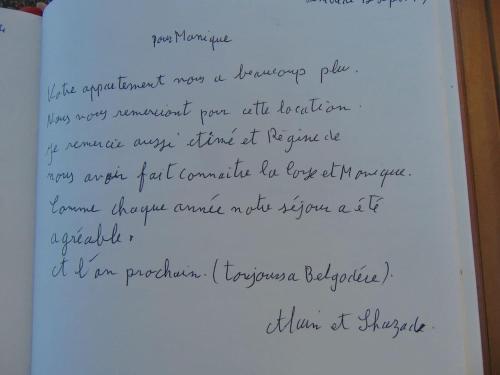 pour Monique
Votre appartement nous a beaucoup plu.
Nous vous remerciont pour cette location.
Je remercie aussi Aimé et Régine de
nous avoir fait connaitre la Corse et Monique.
Comme chaque année notre séjour a été
agréable.
A l'an prochain. (toujours a Belgodère).
Alain et